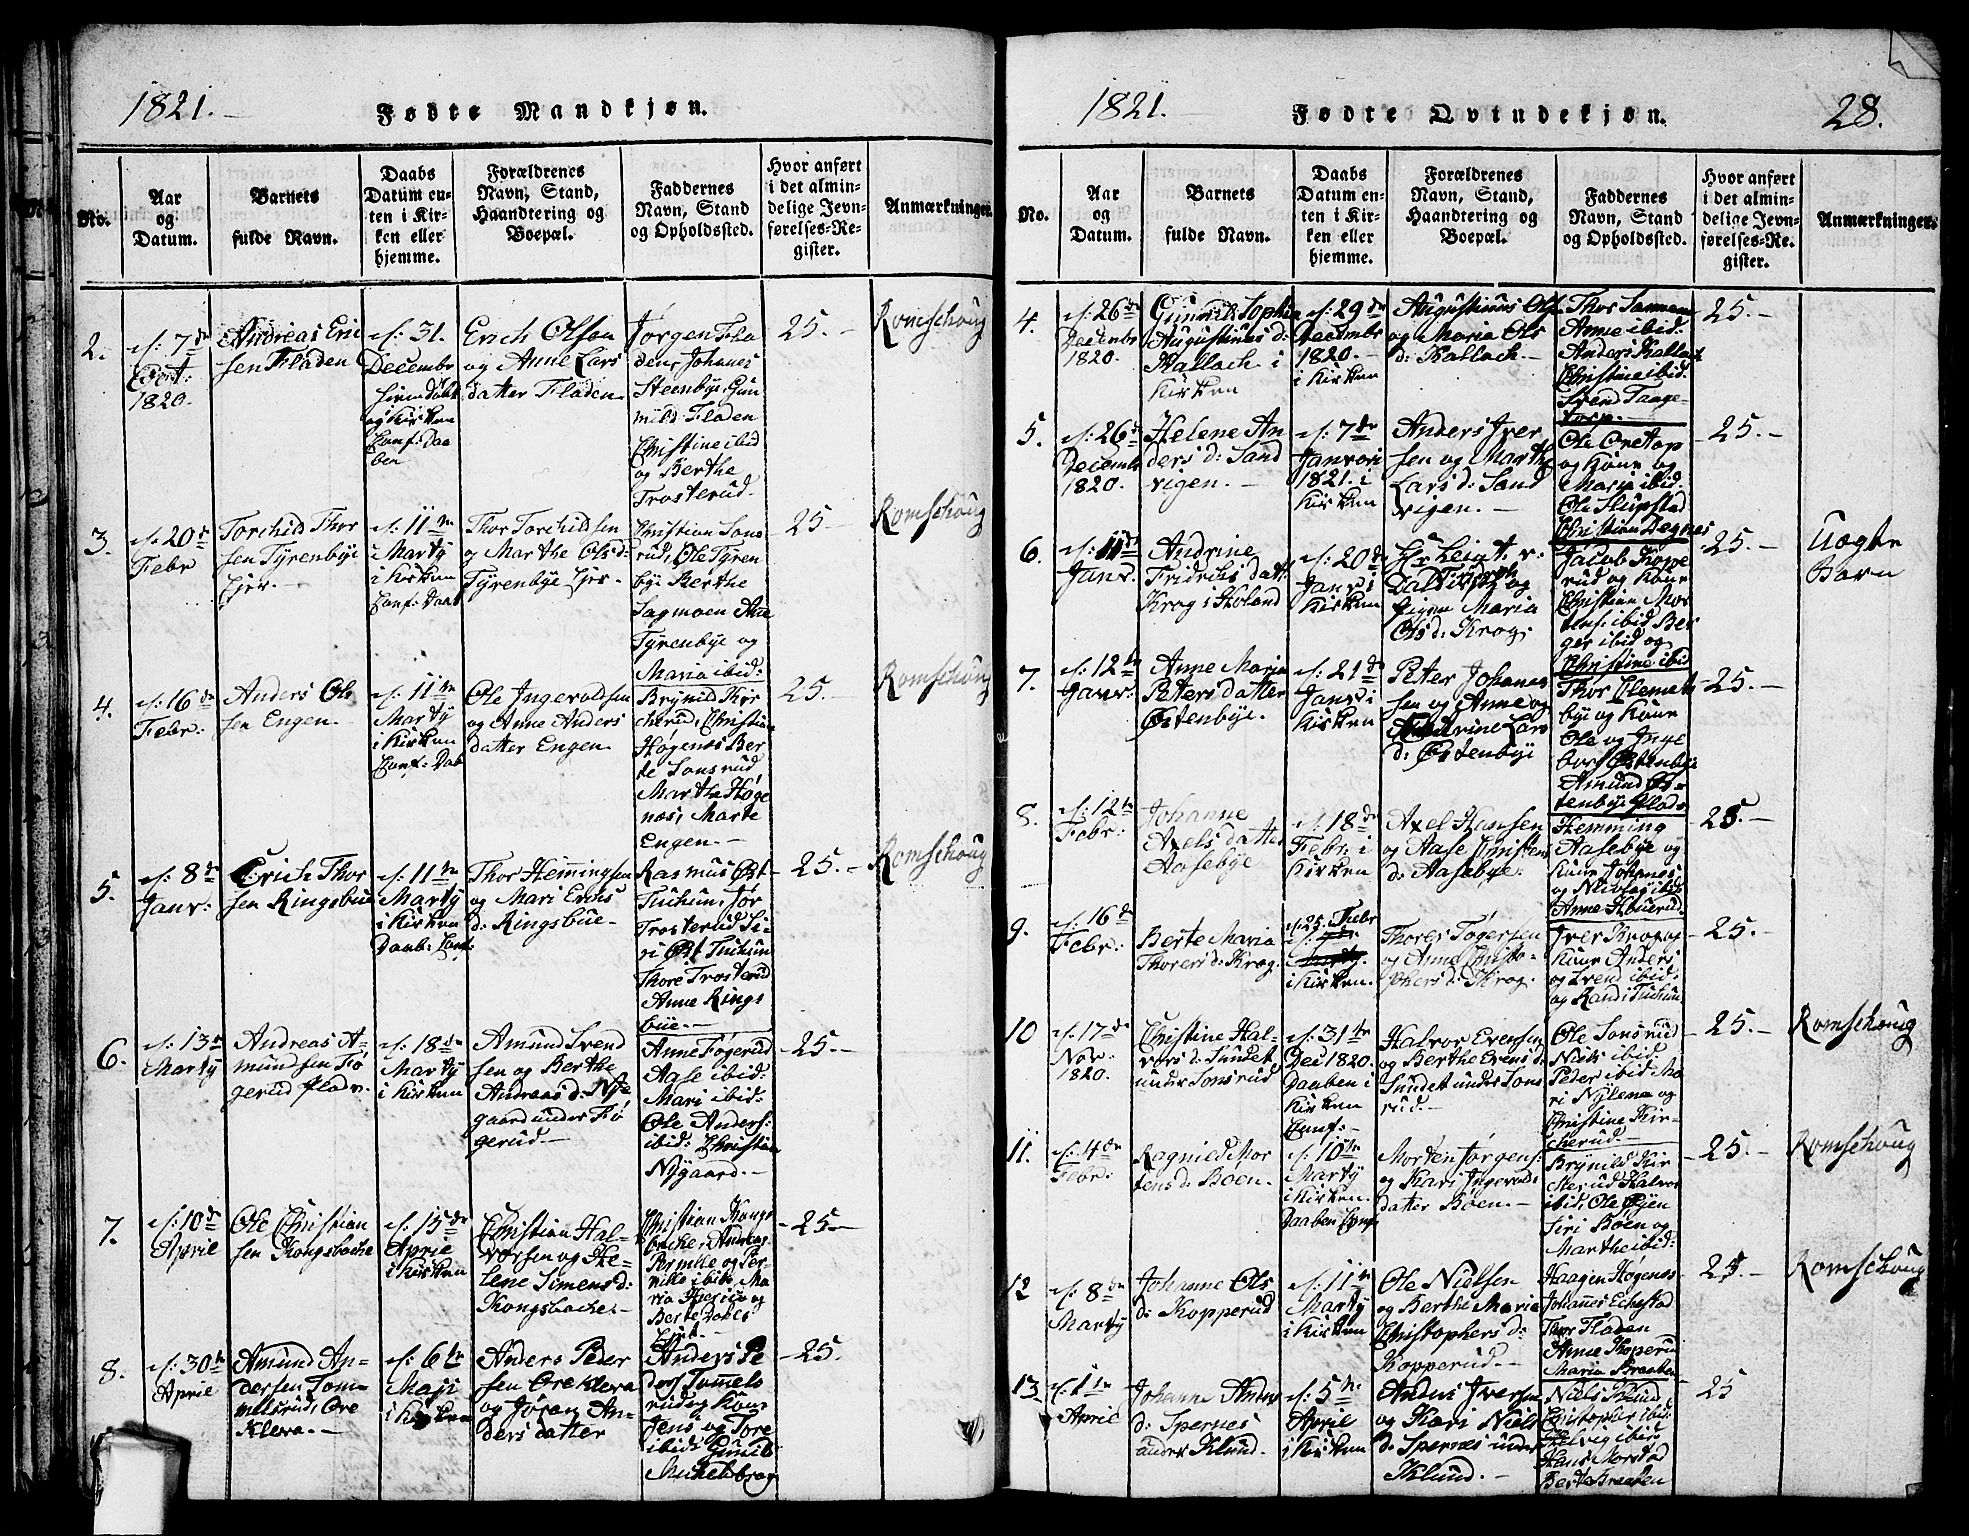 1821.
Fødte Mandkjøn.
No.
Aar
og
Datum.
Barnets
fulde Navn.
Daabs
Datum en-
ten i Kir-
ken eller
hjemme.
Forældrenes
Navn, Stand,
Haandtering og
Boepæl.
Faddernes
Navn, Stand
og Opholdssted.
Hvor anført
i det almin-
delige Jevn-
førelses-Re-
gister.
Anmærkninger.
2.
d: 7de
Octr:
1820.
Andreas Eric
sen Fladen
d: 31.
Decembr
i Kirken
Conf: Daa
ben
Erich Olsen
og Anne Lars
datter Fladen
Jørgen Fla
den, Johanes
Steenbye, Gun
nild Fladen
Christine ibid
og Berthe
Trosterud.
25.
Romschoug
3.
d: 20de
Febr
Torchild Thor
sen Tyrenbye
Ejer.
d: 11te
Marty
i Kirken
Conf: Daab
Thor Torchildsen
og Marthe Olsd:
Tyrenbye Ejer.
Christian Sons
rud, Ole Tyren
bye Berthe
Sagmoen Anne
Tyrenbye og
Maria ibid:
25.
Romschoug
4.
d: 16de
Febr:
Anders Ols
sen Engen.
d: 11te
Marty
i Kirken
Conf: Daab
Ole Ingevoldsen
og Anne Anders
datter Engen
Brynild Kir
cherud, Christian
Høgenæs Ber
te Sonsrud
Marthe Høge
næs, Marte
Engen.
25.
Romschoug
5.
d: 8de
Janr:
Erich Thor
sen Ringsbue
d: 11te
Marty
i Kirken
Daab: Conf:
Thor Hemingsen
og Mari Erichs
d: Ringsbue
Rasmus Øst
Tuchum, Tor
Trosterud Si-
ri Øst Tuchum
Thore Trosterud
Anne Rings
bue.
25.
Romschoug
6.
d: 13de
Marty
Andreas A-
mundsen Fø
gerud Plads.
d: 18de
Marty
i Kirken
Amund Svend
sen og Berthe
Andreas d: Nye
gaard under Fø
gerud
Anne Føgerud
Aase ibid:
Mari ibid:
Ole Anders:
ibid: Christian
Nygaard.
25.
7.
d: 10de
April
Ole Christian
sen Kongsbache
d: 15de
April
i Kirken
Christian Hal-
vorsen og He-
lene Simensd:
Kongsbache
Christian Kongs
bache, Andreas
Pernille og Per-
nille ibid, Ma
ria
Berte
25.
8.
d: 30te
April
Amund An-
dersen Tom-
melsrud, Øre
Kleva.
d: 6te
Maji
i Kirken
Anders Peder
sen Ørekleva
og Jøran An-
ders datter
Anders Pe
ders Tommels
rud og Kone
Jens og Tore
ibid. Gunild
Mickelsbrog
25.
1821.
Fødte Qvindekjøn.
28.
No.
Aar
og
Datum.
Barnets
fulde Navn.
Daabs
Datum en-
ten i Kir-
ken eller
hjemme.
Forældrenes
Navn, Stand,
Haandtering og
Boepæl.
Faddernes
Navn, Stand
og Opholdssted.
Hvor anført
i det almin-
delige Jevn-
førelses-Re-
gister.
Anmærkninger.
4.
d: 26de
Decembr
1820.
Gunild Sophia
Augustinus d:
Kallach i
Kirken
d: 29de
Decembr
1820.
i Kirken
Augustinus Ols
og Maria Ols
d: Kallach
Thor
Anne ibid:
Anders Kallach
Christine ibid.
Svend Taage-
torp.
25.
5.
d: 26de
Decembr
1820.
Helene An
ders d: Sand
vigen.
d: 7de
Januari
1821. i
Kirken
Anders Iver
sen og Marthe
Lars d: Sand
vigen.
Ole Oretop
og Kone og
Maria ibid.
Ole Slupstad
Christian Degnes
25.
6.
d: 11te
Janr:
Andrine
Fridrichs datt:
Krog i Høland
d: 20de
Janr i
Kirken
og
Pigen Maria
Olsd: Krog.
Jacob Kope
rud og Kone
Christian Mor
tens: ibid Ber
ger ibid og
Christine ibid
25.
Uægte
Barn
7.
d: 12te
Janr:
Anne Maria
Peters datter
Østenbye.
d: 21de
Janr i
Kirken
Peter Johanes
sen og Anne
Lars
d: Østenbye
Thor Clemets
bye og Kone
Ole og Inge
bor Østenbye
Amund Øs-
tenbye Plads
25.
8.
d: 12te
Febr:
Johanne
Axels datter
Aasebye
d: 18de
Febr: i
Kirken
Axel Hansen
og Aase Christens
d: Aasebye.
Hemming
Aasebye og
Kone Johanes
og
Anne
25.
9.
d: 16de
Febr:
Berte Maria
Thorers d: Krog.
d: 25. Febr
i Kirken.
Thorer Tøgersen
og Anne Christo-
phers d: Krog.
Iver Krog og
Kone Anders
og Svend ibid:
og Randi Tuchum
25.
10
d: 17de
Nov:
1820.
Christine Hal-
vors d: Sundet
under Sonsrud
d: 31te
Dec 1820.
Daaben i
Kirken
Conf:
Halvor Evensen
og Berthe Evens d:
Sundet under Sons
rud.
Ole Sonsrud
Niels ibid
Peder ibid Ma
ri Nylena og
Christine Kir-
cherud.
25.
Romschoug
11.
d: 4de
Febr:
Ragnild Mor
tens d: Boen.
d: 10te
Marty
i Kirken.
Daaben Conf:
Morten Jørgens:
og Kari Ingevolds
datter Boen.
Brynild Kir
cherud Halvor
ibid, Ole Byen
Siri Boen og
Marthe ibid:
25.
Romschoug
12
d: 8de
Marty
Johanne Ols
d: Kopperud
d: 11te
Marty
i Kirken
Ole Nielsen
og Berthe Marie
Christophers d:
Kopperud.
Haagen Høgenæs
Johanes Echestad
Thor Fladen
Anne Koperud
Maria Braaten
25.
Romschoug
13.
d: 1te
April
Johanne Anders
d: Spernes
under Klund.
d: 5te
April
i Kirken
Anders Iversen
og Kari Niels
d: Spernes under
Klund.
Niels Klund
Christopher ibid:
Helvig ibid:
Hans Morstad
Berte Braaten
25